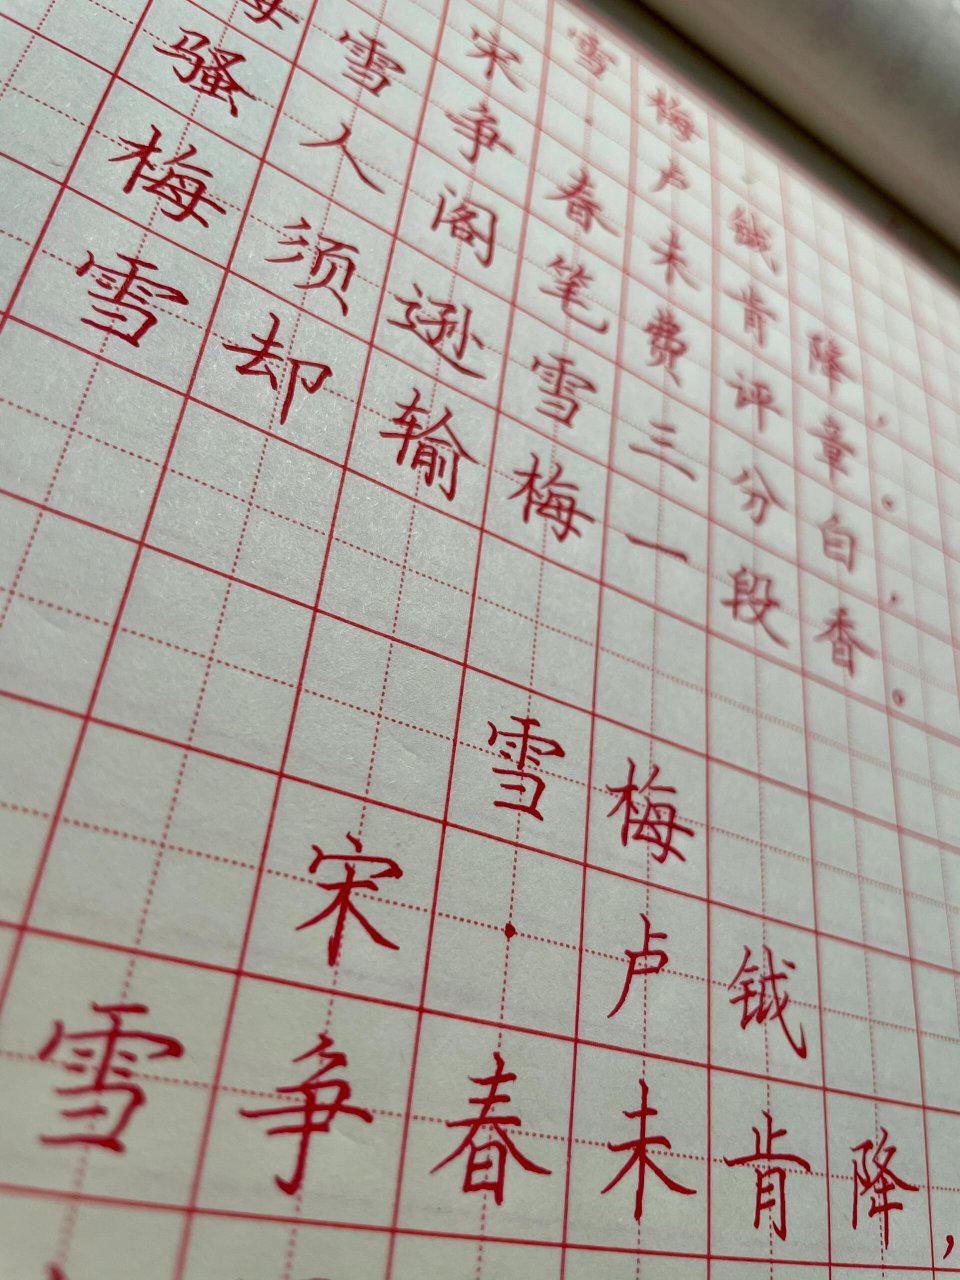 雪梅
宋·卢钺
梅雪争春未肯降，
骚人阁笔费评章。
梅须逊雪三分白，
雪却输梅一段香。
雪梅
宋·卢钺
雪争春未肯降，